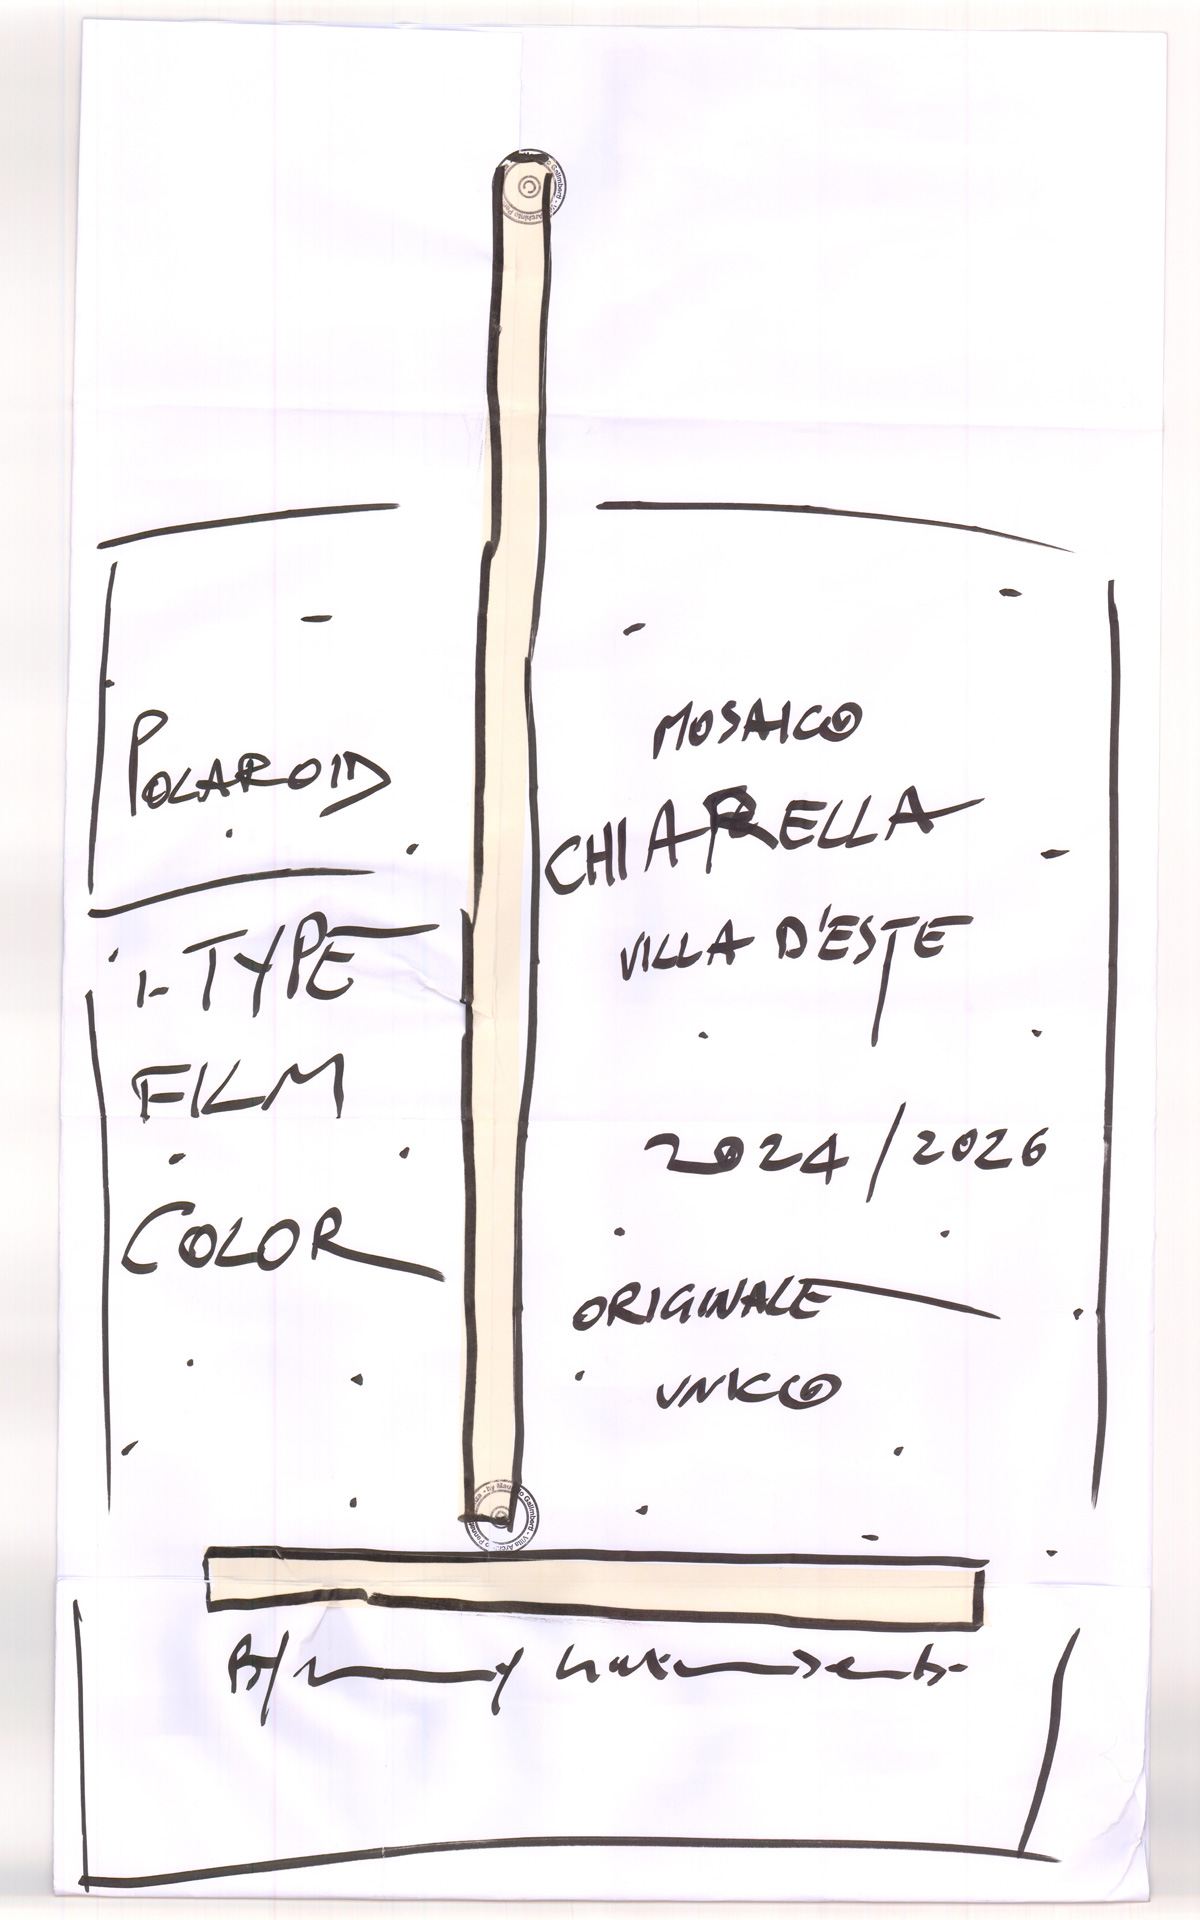 POLAROID
i-TYPE
FILM
COLOR
MOSAICO
CHIARELLA
VILLA D'ESTE
2024/2026
ORIGINALE
UNICO
By